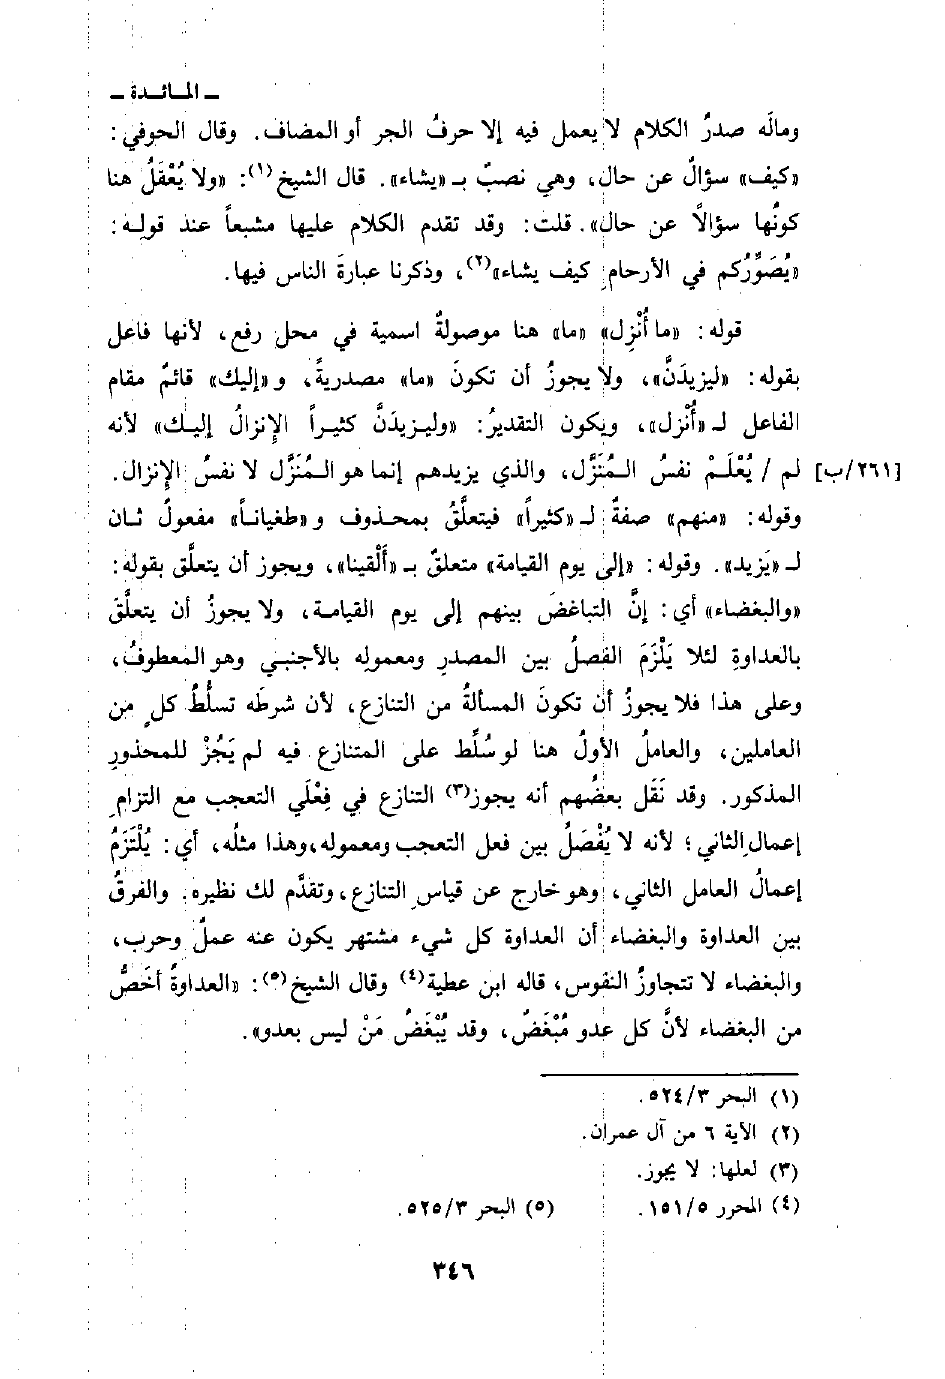 ـ المـائـدة ـ
ومالَه صدرُ الكلام لا يعمل فيه إلا حرفُ الجر أو المضاف. وقال الحوفي:
«كيف» سؤالٌ عن حال، وهي نصبٌ بـ «يشاء». قال الشيخ(١): «ولا يُعْقَلُ هنا
كونُها سؤالاً عن حال». قلت: وقد تقدم الكلام عليها مشبعاً عند قولـه:
«يُصَوِّرُكم في الأرحام كيف يشاء»(٢)، وذكرنا عبارةَ الناس فيها.
قوله: «ما أُنْزِل» «ما» هنا موصولةٌ اسمية في محل رفع، لأنها فاعل
بقوله: «ليزيدَنَّ»، ولا يجوزُ أن تكونَ «ما» مصدريةً، و«إليك» قائمٌ مقام
الفاعل لـ «أُنْزل»، ويكون التقديرُ: «وليـزيدَنَّ كثيـراً الإِنزالُ إليـك» لأنه
[٢٦١/ب] لم / يُعْلَمْ نفسُ المُنَزَّل، والذي يزيدهم إنما هو المُنَزَّل لا نفسُ الإِنزال.
وقوله: «منهم» صفةٌ لـ «كثيراً» فيتعلَّقُ بمحذوف و«طغيانـاً» مفعولٌ ثـان
لـ «يَزيد». وقوله: «إلى يوم القيامة» متعلقٌ بـ «أَلْقينا»، ويجوز أن يتعلَّق بقوله:
«والبغضاء» أي: إنَّ التباغضَ بينهم إلى يوم القيامـة، ولا يجوزُ أن يتعلَّقَ
بالعداوةِ لئلا يَلْزَمَ الفصلُ بين المصدرِ ومعمولِه بالأجنبـي وهو المعطوفُ،
وعلى هذا فلا يجوزُ أن تكونَ المسألةُ من التنازع، لأن شرطَه تسلُّطُ كلٍ من
العاملين، والعاملُ الأولُ هنا لو سُلِّط على المتنازع فيه لم يَجُزْ للمحذورِ
المذكور. وقد نَقَل بعضُهم أنه يجوز(٣) التنازع في فِعْلَي التعجب مع التزامِ
إعمالِ الثاني؛ لأنه لا يُفْصَلُ بين فعل التعجب ومعموله،وهذا مثلُه، أي: يُلْتَزَمُ
إعمالُ العامل الثاني، وهو خارج عن قياسِ التنازع،وتقدَّم لك نظيره. والفرقُ
بين العداوة والبغضاء أن العداوة كل شيء مشتهر يكون عنه عملٌ وحرب،
والبغضاء لا تتجاوزُ النفوس، قاله ابن عطية(٤) وقال الشيخ(٥): «العداوةُ أخَصُّ
من البغضاء لأنَّ كل عدو مُبْغَضٌ، وقد يُبْغَضُ مَنْ ليس بعدو».
(١) البحر ٥٢٤/٣.
(٢) الآية ٦ من آل عمران.
(٣) لعلها: لا يجوز.
(٤) المحرر ١٥١/٥. (٥) البحر ٥٢٥/٣.
٣٤٦